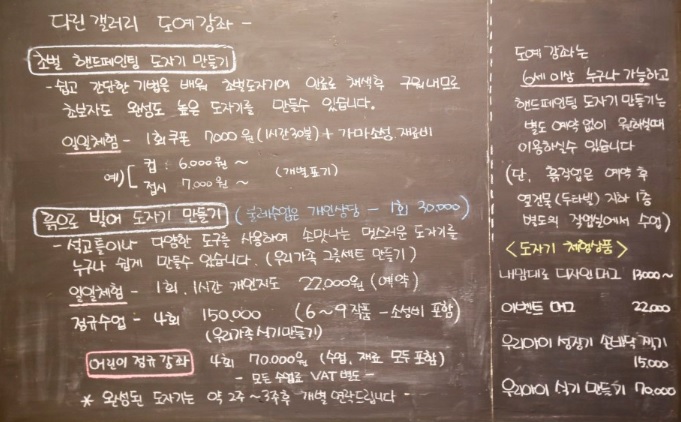 다린 갤러리 도예강좌 -
초벌 핸드페인팅 도자기 만들기
- 쉽고 간단한 기법을 배워 초벌도자기에 안료로 채색후 구워내므로
초보자도 완성도 높은 도자기를 만들수 있습니다.
일일체험 - 1회쿠폰 7000원 (1시간30분) + 가마소성.재료비
예) [ 컵 : 6.000원 ~
접시 7.000원 ~ (개별표기)
흙으로 빚어 도자기 만들기 (물레수업은 개인상담 - 1회 30.000)
- 석고틀이나 다양한 도구를 사용하여 손맛나는 멋스러운 도자기를
누구나 쉽게 만들수 있습니다. (우리가족 그릇세트 만들기)
일일체험 - 1회. 1시간 개인지도 22.000원 (예약)
정규수업 - 4회 150.000 (6~9작품 - 소성비 포함)
(우리가족 식기만들기)
어린이 정규 강좌 4회 70.000원 (수업, 재료 모두포함)
- 모든 수업료 VAT 별도 -
* 완성된 도자기는 약 2주~3주후 개별 연락드립니다 -
도예 강좌는
6세 이상 누구나 가능하고
핸드페인팅 도자기 만들기는
별도 예약 없이 원하실때
이용하실수 있습니다
(단, 흙작업은 예약 후
옆건물 (두타빌) 지하 1층
별도의 작업실에서 수업)
<도자기 체험상품>
내맘대로 디자인 머그 13000~
이벤트 머그 22.000
우리아이 성장기 손바닥 찍기
15.000
우리아이 식기 만들기 70.000